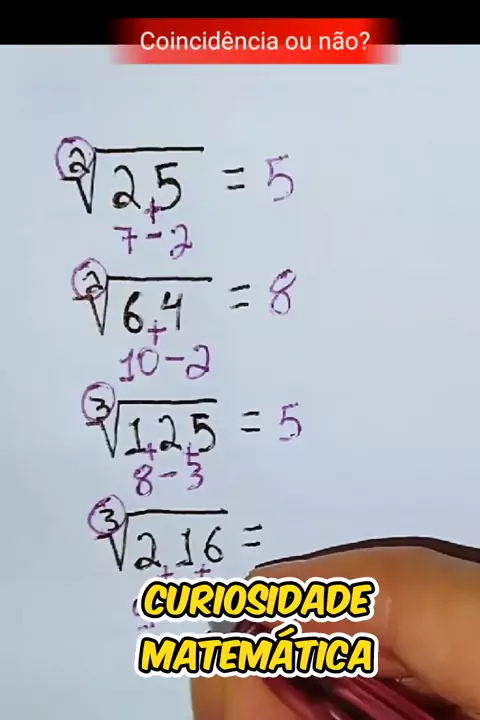 Coincidência ou não?
²√25 = 5
+
7-2
²√64 = 8
+
10-2
³√125 = 5
+ +
8-3
³√216 =
+ +
CURIOSIDADE
MATEMÁTICA